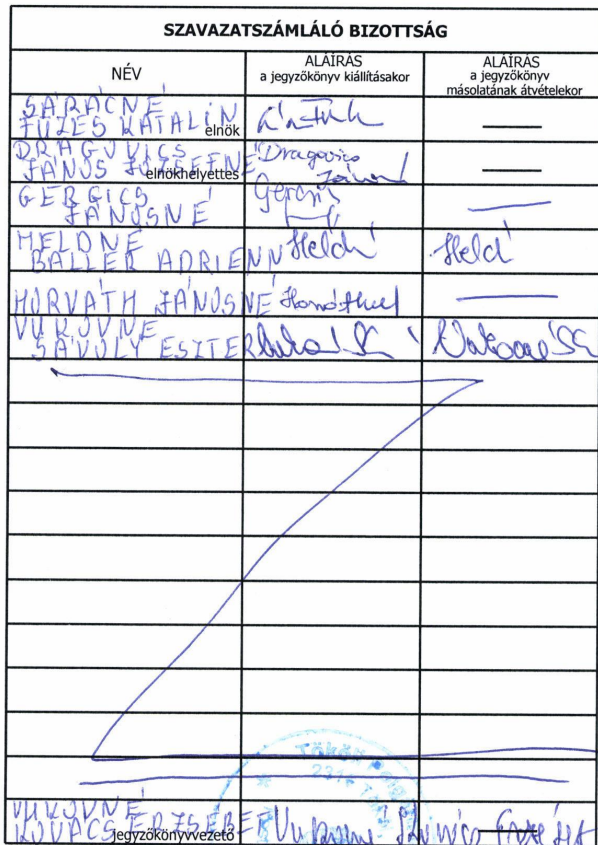 SZAVAZATSZÁMLÁLÓ BIZOTTSÁG
NÉV
ALÁÍRÁS
a jegyzőkönyv kiállításakor
ALÁÍRÁS
a jegyzőkönyv
másolatának átvételekor
SÁRÁCNÉ
FÜZES KATALIN elnök
—
DRAGOVICS
JÁNOS JÓZSEFNÉ elnökhelyettes
Dragovics
—
GERGICS
JÁNOSNÉ
—
HELDNÉ
BALLER ADRIENN
Heldné
Held
HORVÁTH JÁNOSNÉ
—
VUKOVNÉ
SÁVOLY ESZTER
VUKOVNÉ
KOVÁCS ERZSÉBET jegyzőkönyvvezető
TÖKÖL
2316